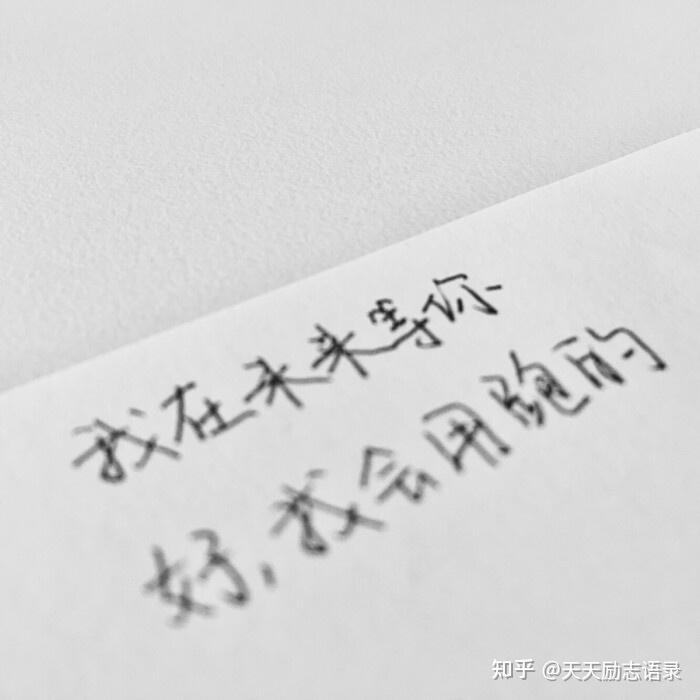 我在未来等你
好,我会用跑的
知乎 @天天励志语录